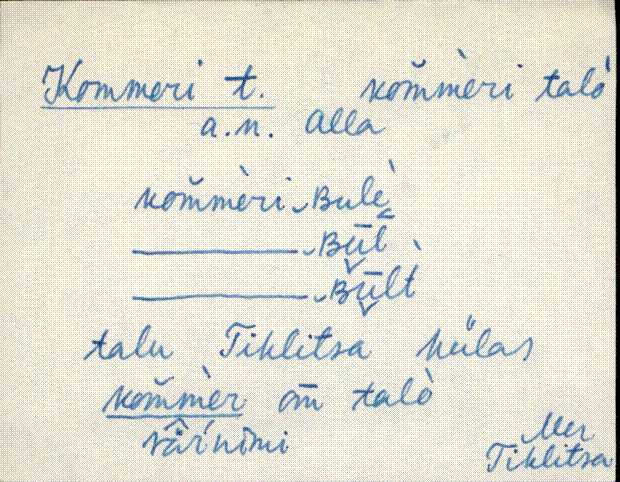 Kommeri t. kom̆mèri talò
a.n. Alla
kom̆mèri‿Bulè
——‿Būl̀
——‿Būlt̀
talu Tiklitsa külas
kom̆mèr om̄ talò
nimi
Mer
Tiklitsa